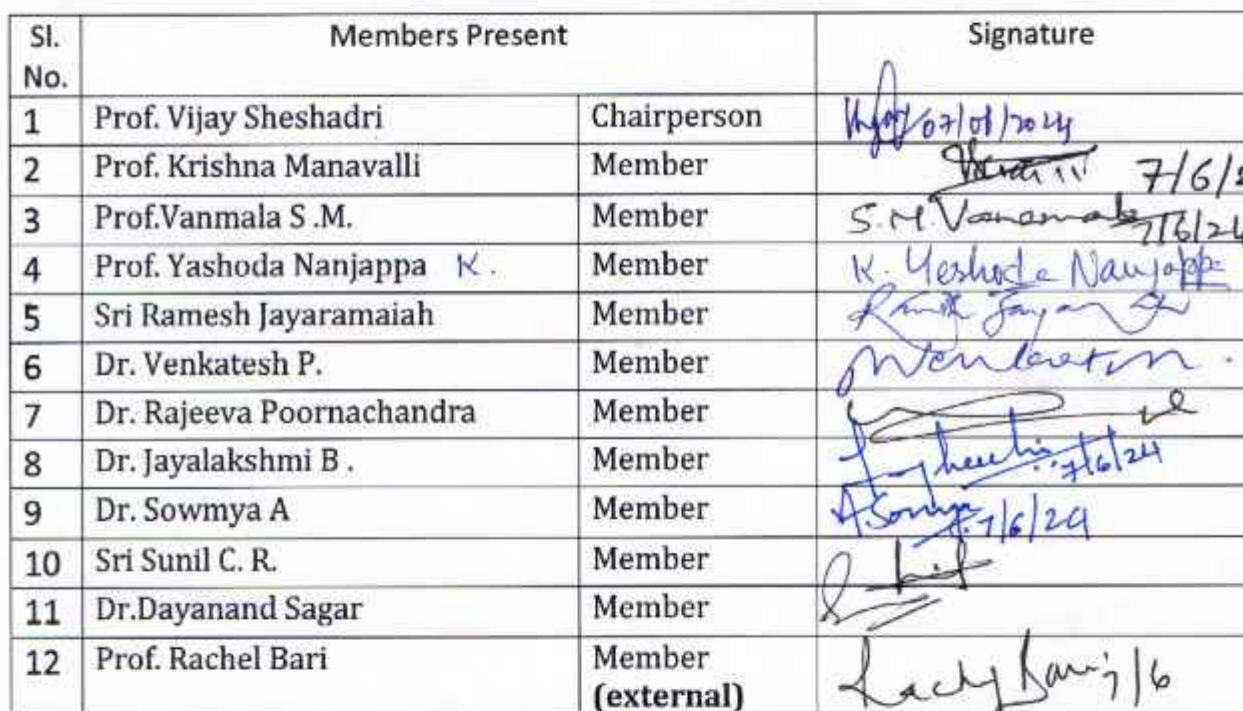 Sl. No. Members Present Signature
1 Prof. Vijay Sheshadri Chairperson 07/06/2024
2 Prof. Krishna Manavalli Member 7/6/2
3 Prof.Vanmala S .M. Member S.M. Vanamala 7/6/24
4 Prof. Yashoda Nanjappa K. Member K. Yeshoda Nanjappa
5 Sri Ramesh Jayaramaiah Member
6 Dr. Venkatesh P. Member
7 Dr. Rajeeva Poornachandra Member
8 Dr. Jayalakshmi B . Member 7/6/24
9 Dr. Sowmya A Member A.Sowmya 7/6/24
10 Sri Sunil C. R. Member
11 Dr.Dayanand Sagar Member
12 Prof. Rachel Bari Member Rachel Bari 7/6
(external)